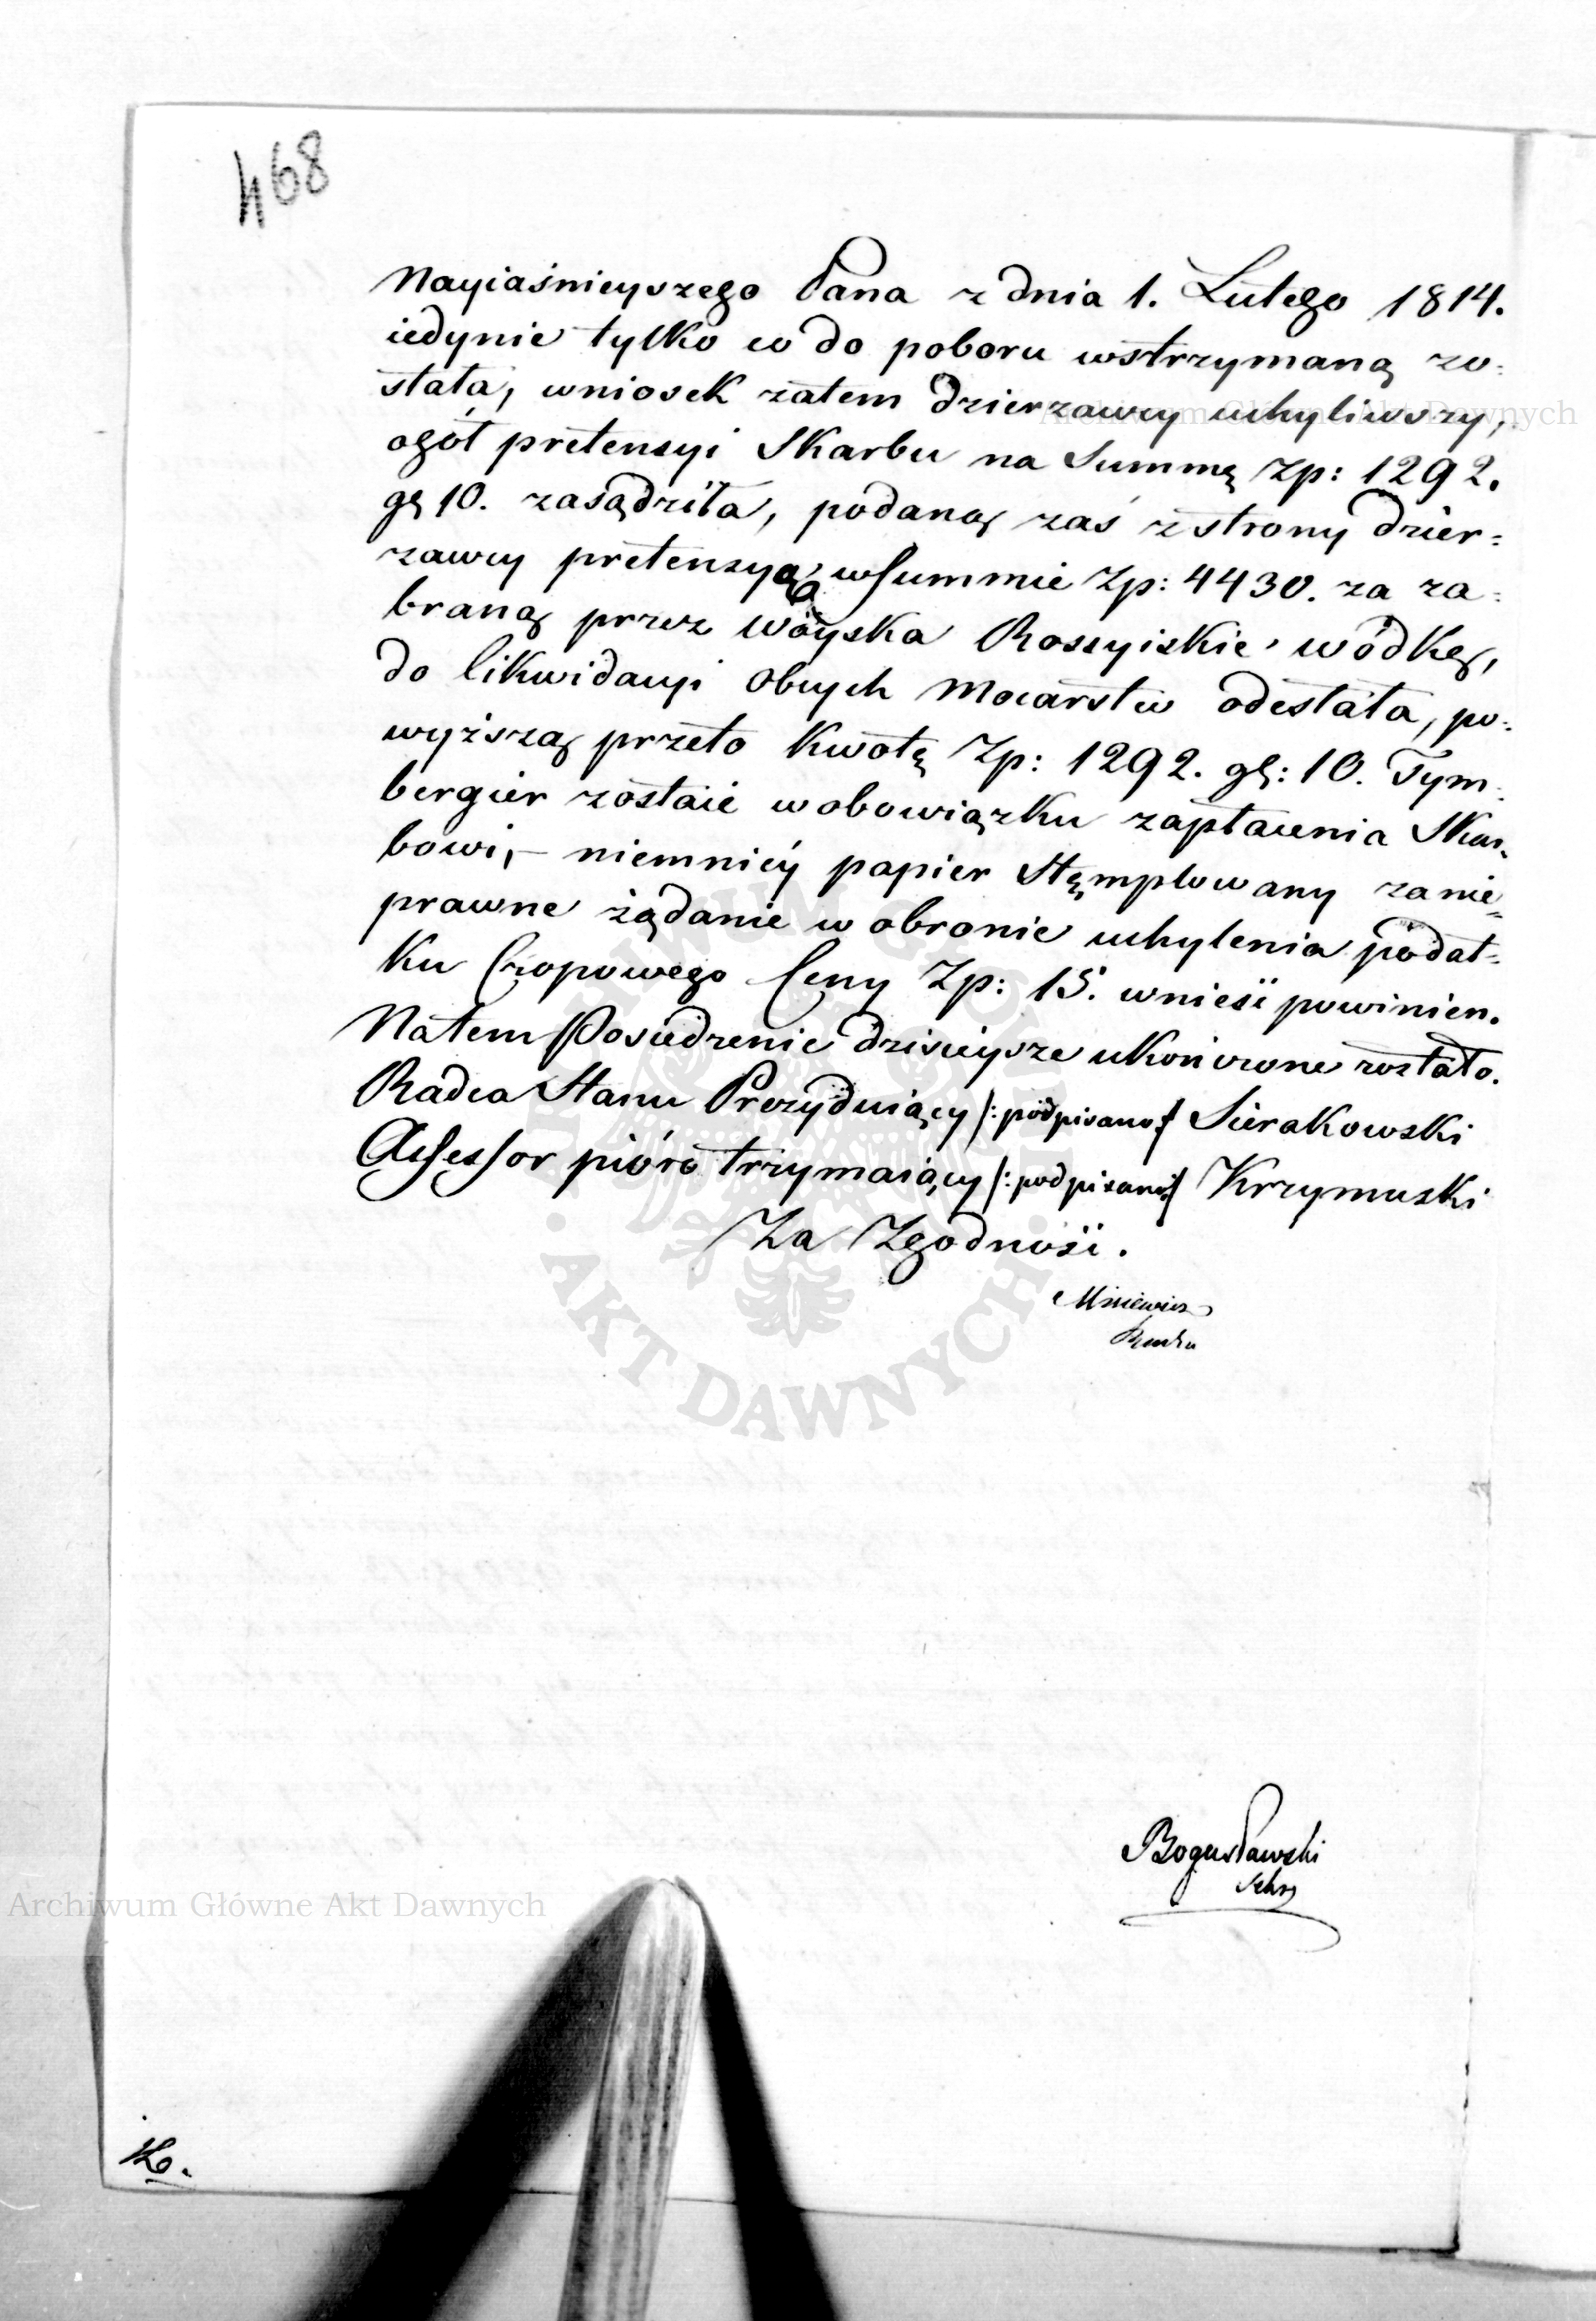 468
Nayiaśnieyszego Pana z dnia 1. Lutego 1814.
iedynie tylko co do poboru wstrzymaną zo=
stała, wniosek zatem dzierzawcy uchyliwszy,
ogół pretensyi Skarbu na Summę Zp: 1292.
gr 10. zasądziła, podaną zaś z strony dzier=
zawcy pretensyą w Summie Zp: 4430. za za=
braną przez Woyska Rossyiskie wódkę,
do likwidacyi Obcych Mocarstw odesłała, po=
wyższą przeto Kwotę Zp: 1292. gr: 10. Tym=
bergier zostaie w obowiązku zapłacenia Skar=
bowi, – niemniéy papier stęmplowany za nie=
prawne żądanie w obronie uchylenia podat=
ku Czopowego Ceny Zp: 15. wnieść powinien.
Na tem Posiedzenie dzisieysze ukończone zostało.
Radca Stanu Prezyduiący /: podpisano :/ Sierakowski
Assessor pióro trzymaiący /: podpisano :/ Krzymuski
Za Zgodność.
Bogusławski
Sekrz
Archiwum Główne Akt Dawnych
Archiwum Główne Akt Dawnych
ARCHIWUM GŁÓWNE · AKT DAWNYCH ·